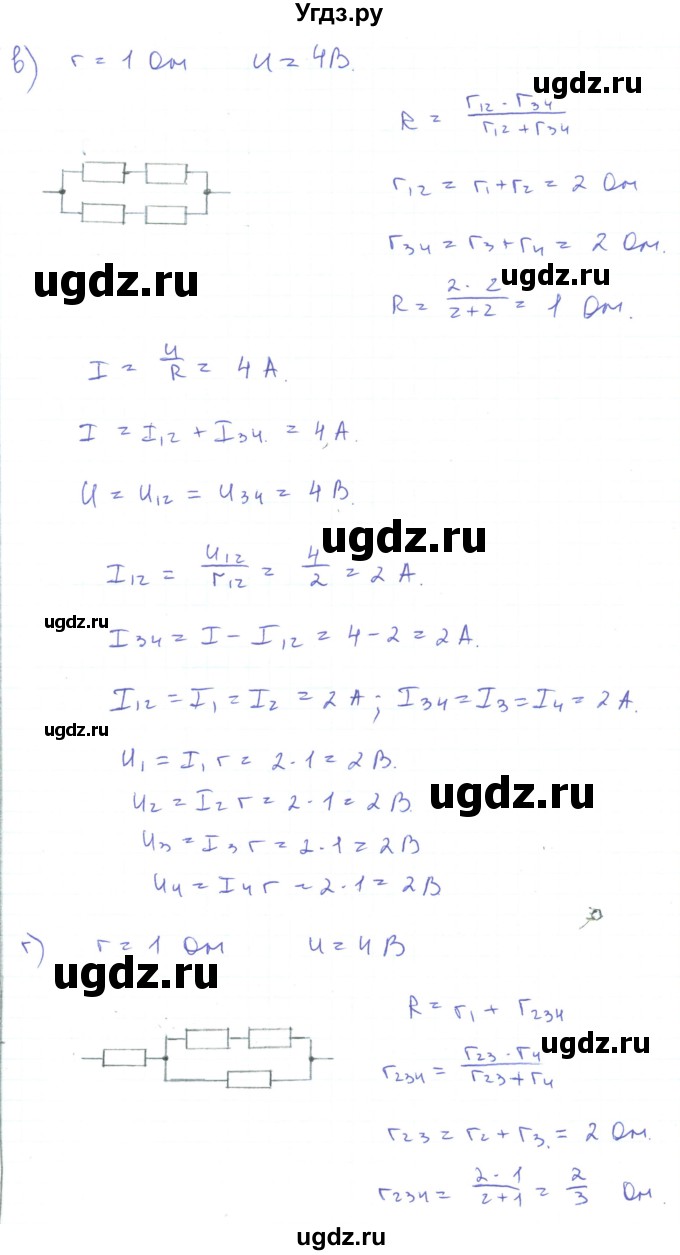 Угдз.ру
в) r = 1 Ом U = 4В.
ugdz.ru
R = r12 · r34 / r12 + r34
r12 = r1 + r2 = 2 Ом
r34 = r3 + r4 = 2 Ом.
ugdz.ru
ugdz.ru
R = 2 · 2 / 2+2 = 1 Ом.
I = U/R = 4 А.
I = I12 + I34. = 4 А.
U = U12 = U34 = 4 В.
ugdz.ru
I12 = U12/r12 = 4/2 = 2 А.
ugdz.ru
I34 = I - I12 = 4 - 2 = 2 А.
I12 = I1 = I2 = 2 А; I34 = I3 = I4 = 2 А.
ugdz.ru
U1 = I1 r = 2·1 = 2 В.
U2 = I2 r = 2·1 = 2 В.
ugdz.ru
U3 = I3 r = 2·1 = 2 В
U4 = I4 r = 2·1 = 2 В
г) r = 1 Ом U = 4 В
ugdz.ru
R = r1 + r234
r234 = r23 · r4 / r23 + r4
ugdz.ru
r23 = r2 + r3. = 2 Ом.
r234 = 2·1 / 2+1 = 2/3 Ом.
ugdz.ru
ugdz.ru